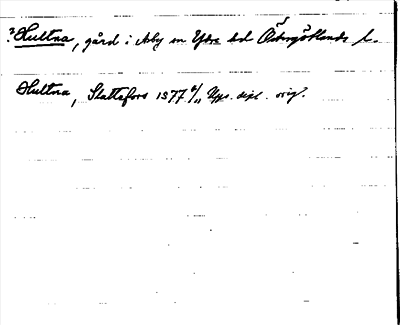 ? Hultna, gård i Asby sn Ydre hd Östergötlands l.
Hultna, Slattefors 1377 4/11 Ups. dipl. orig.